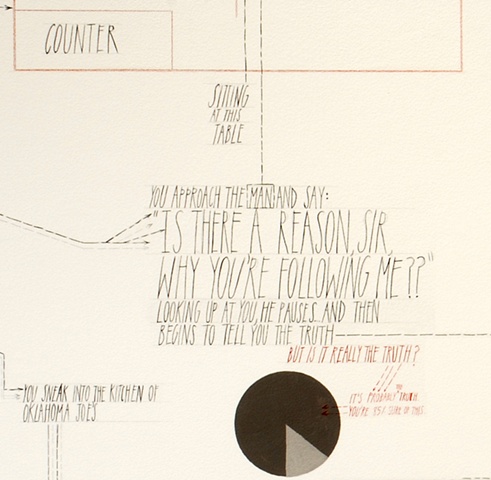 COUNTER
SITTING
AT THIS
TABLE
YOU APPROACH THE MAN AND SAY:
"IS THERE A REASON, SIR,
WHY YOU'RE FOLLOWING ME??"
LOOKING UP AT YOU, HE PAUSES. AND THEN
BEGINS TO TELL YOU THE TRUTH
BUT IS IT REALLY THE TRUTH?
IT'S PROBABLY TRUTH.
YOU'RE 85% SURE OF THIS.
YOU SNEAK INTO THE KITCHEN OF
OKLAHOMA JOE'S